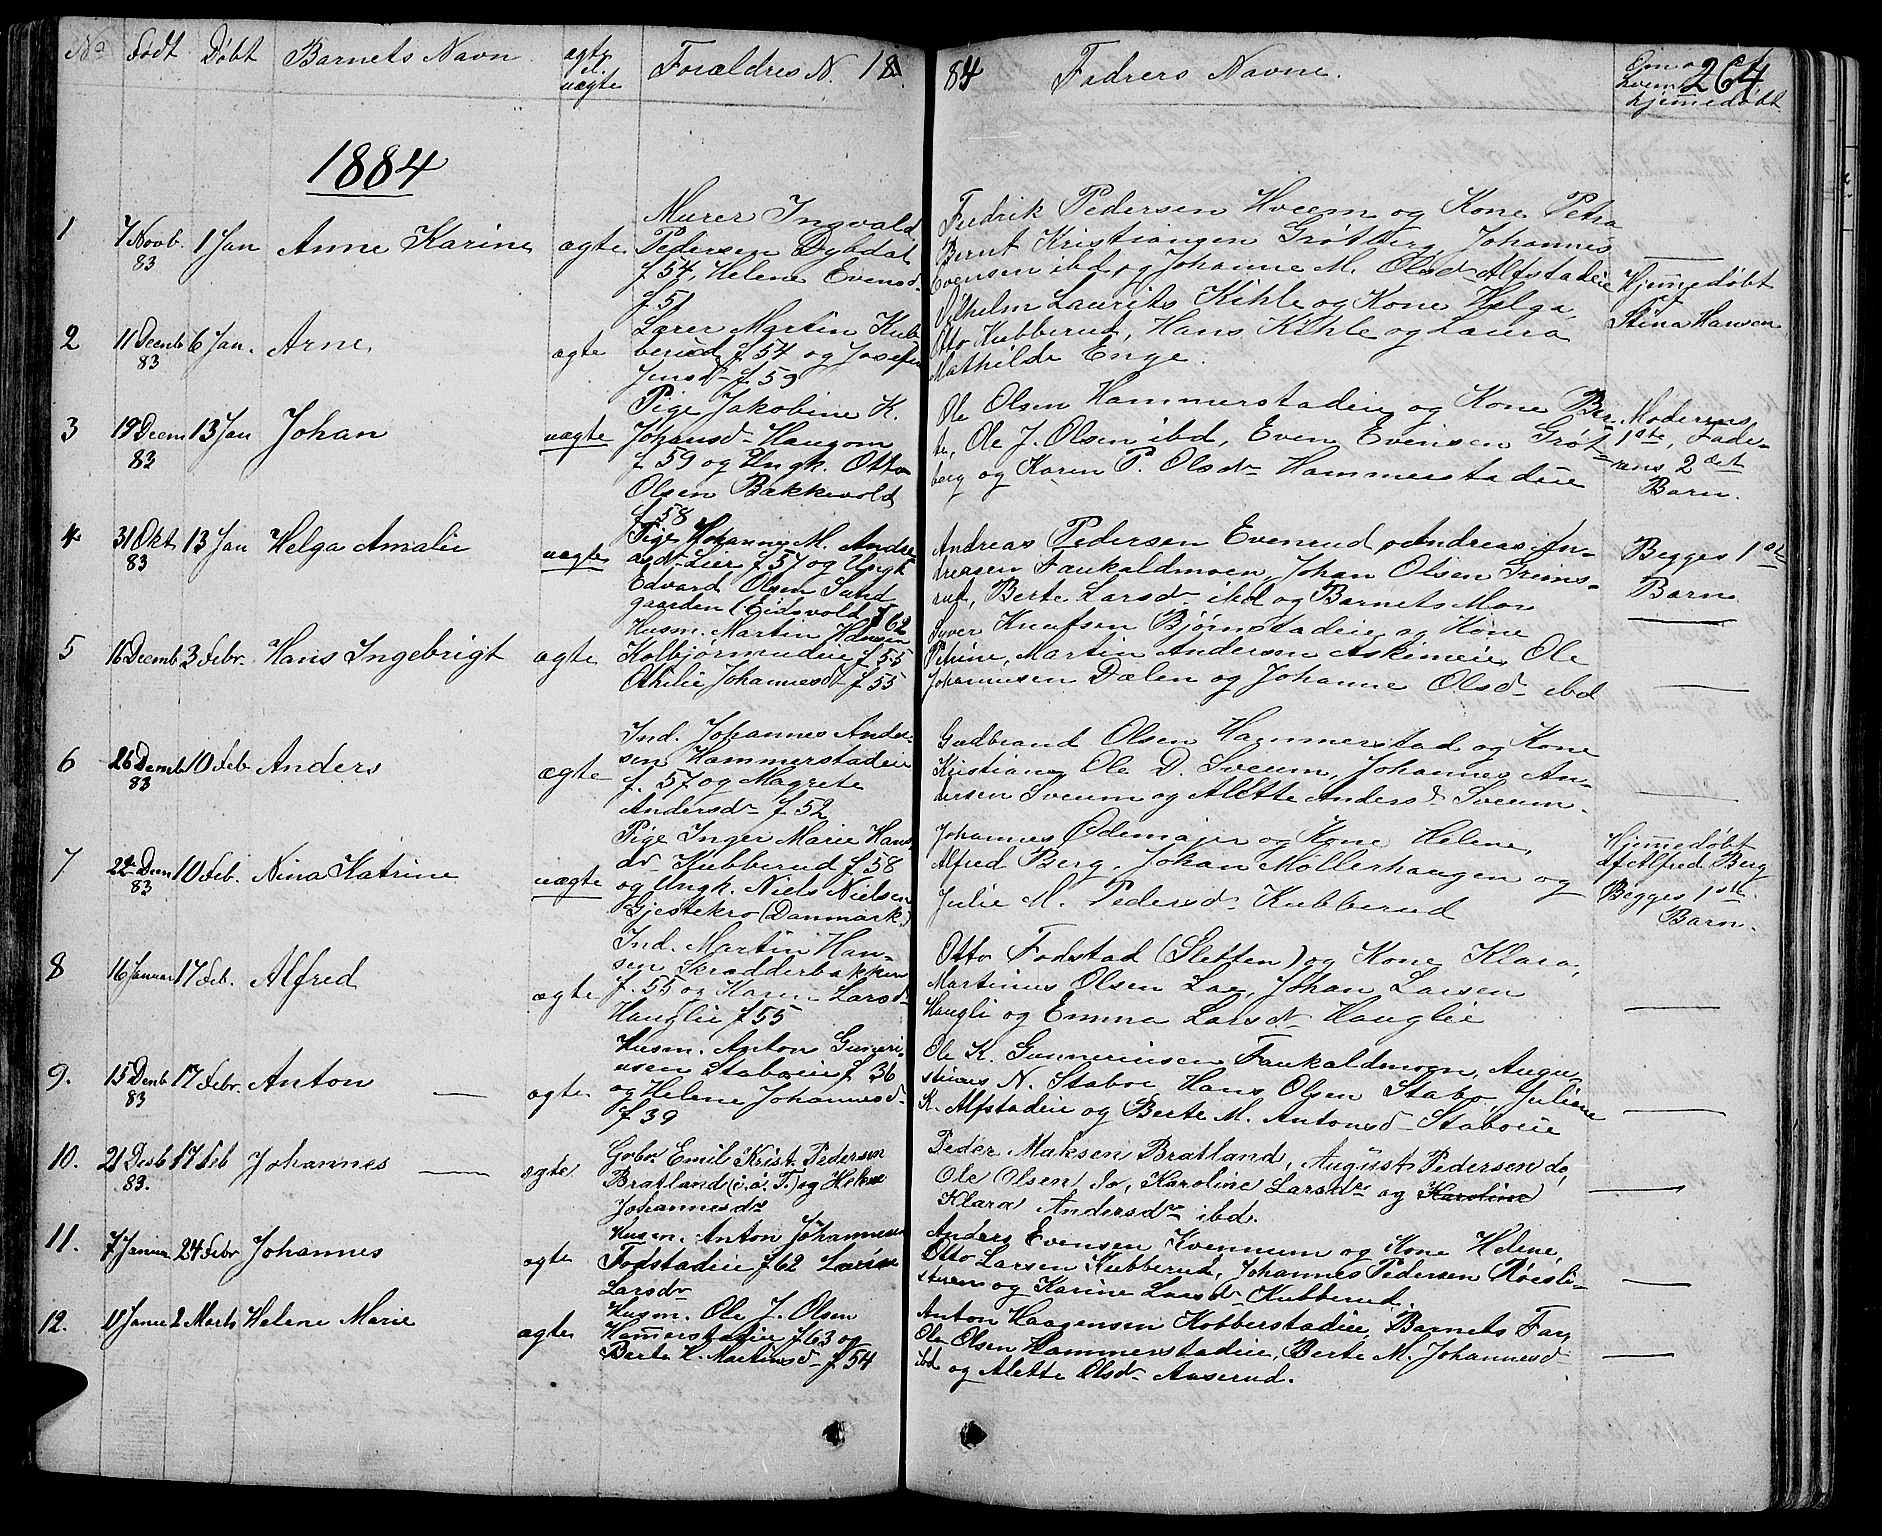 No Født Døbt Barnets Navn ægte el. uægte Forældres N. 18
84 Fadrers Navne. Om og hvem hjemmedøbt 264
1884
1 7 Novb. 83 1 Jan Anne Karine ægte
Murer Ingvald
Pedersen Dyhdal
f 54, Helene Evensd
f 51
Fredrik Pedersen Hveem og Kone Petra
Bernt Kristiansen Grøtberg, Johannes
Evensen ibd og Johanne M. Olsdr Alfstadeie
2 11 Decmb 83 6 Jan. Arne ægte
Lærer Martin Kub-
berud f 54 og Josefin
Jensdr f 59
Vilhelm Laurits Kihle og Kone Helga
Otto Kubberud, Hans Kihle og Laura
Mathilde Enge.
Hjemmedøbt
Stina Hansen
3 19 Decm 83 13 Jan Johan uægte
Pige Jakobine K.
Johansdr Haugom
f 59 og Ungk. Otto
Olsen Bakkevold
f 58
Ole Olsen Hammerstadeie og Kone Ber-
te, Ole J. Olsen ibd, Even Evensen Grøt-
berg og Karen P. Olsdr Hammerstadeie
Moderens
1ste, Fade-
rens 2det
Barn.
4 31 Okt 83 13 Jan Helga Amalie uægte
Pige Johanne M. Andre
asdr Lier f 57 og Ungk
Edvard Olsen Sand
gaarden (Eidsvold f 62
Andreas Pedersen Evenrud, Andreas An-
dreasen Faukaldmoen, Johan Olsen Grims-
rud, Berte Larsdr ibd og Barnets Mor
Begges 1ste
Barn
5 16 Decmb 3 Febr. Hans Ingebrigt ægte
Husm. Martin Hansen
Kolbjørnrudeie f 55
Othilie Johannesdr f 55
Syver Knutsen Bjørnstadeie og Kone
Petrine, Martin Andersen Askimeie, Ole
Johannesen Dælen og Johanne Olsdr ibd
6 26 Decmb 83 10 Feb Anders ægte
Ind. Johannes Ander-
sen Hammerstadeie
f. 57 og Magrete
Andersdr f 52
Gudbrand Olsen Hammerstad og Kone
Kristiane, Ole D. Sveum, Johannes An-
dersen Sveum og Alette Andersd Sveum.
7 22 Decm 83 10 Feb. Nina Katrine uægte
Pige Inger Marie Hans
dr Kubberud f 58
og Ungk. Niels Nielsen
Gjestekro (Danmark)
Johannes Ødemajer og Kone Helene,
Alfred Berg, Johan Møllerhaugen og
Julie M. Pedersdr Kubberud
Hjemmedøbt
af Alfred Berg
Begges 1ste
Barn.
8 16 Januar 17 Feb. Alfred ægte
Ind. Martin Han-
sen Skrædderbakken
f. 55 og Karen Larsdr
Hauglie f 55
Otto Fodstad (Sletten) og Kone Klara,
Martinus Olsen Lae, Johan Larsen
Haugli og Emma Larsdr Hauglie
9. 15 Decmb 83 17 Febr. Anton ægte
Husm. Anton Guneri-
usen Staboeie f 36
og Helene Johannesdr
f 39
Ole K. Gunneriusen Faukaldmoen, Augu
stinus N. Staboe, Hans Olsen Stabo, Juliane
K. Alfstadeie og Berte M. Antonsd Staboeie
10. 21 Desb 83. 17 Feb Johannes ægte
Gbr. Emil Krist. Pedersen
Bratland (i.ø.T.) og Helene
Johannesdr
Peder Maksen Bratland, August Pedersen do,
Ole Olsen do, Karoline Larsdr og Karoline
Klara Andersdr ibd.
11. 7 Januar 24 Febr Johannes ægte
Husm. Anton Johannesen
Fodstadeie f 62 Larine
Larsdr
Anders Evensen Kvennum og Kone Helene,
Otto Larsen Kubberud, Johannes Pedersen Røisli-
stuen og Karine Larsdr Kubberud.
12. 11 Januar 2 Marts Helene Marie ægte
Husm. Ole J. Olsen
Hammerstadeie f 63 og
Berte K. Martinsdr f 54
Anton Haagensen Kobberstadeie, Barnets Far,
Ole Olsen Hammerstadeie, Berte M. Johannesdr
ibd og Alette Olsdr Aaserud.